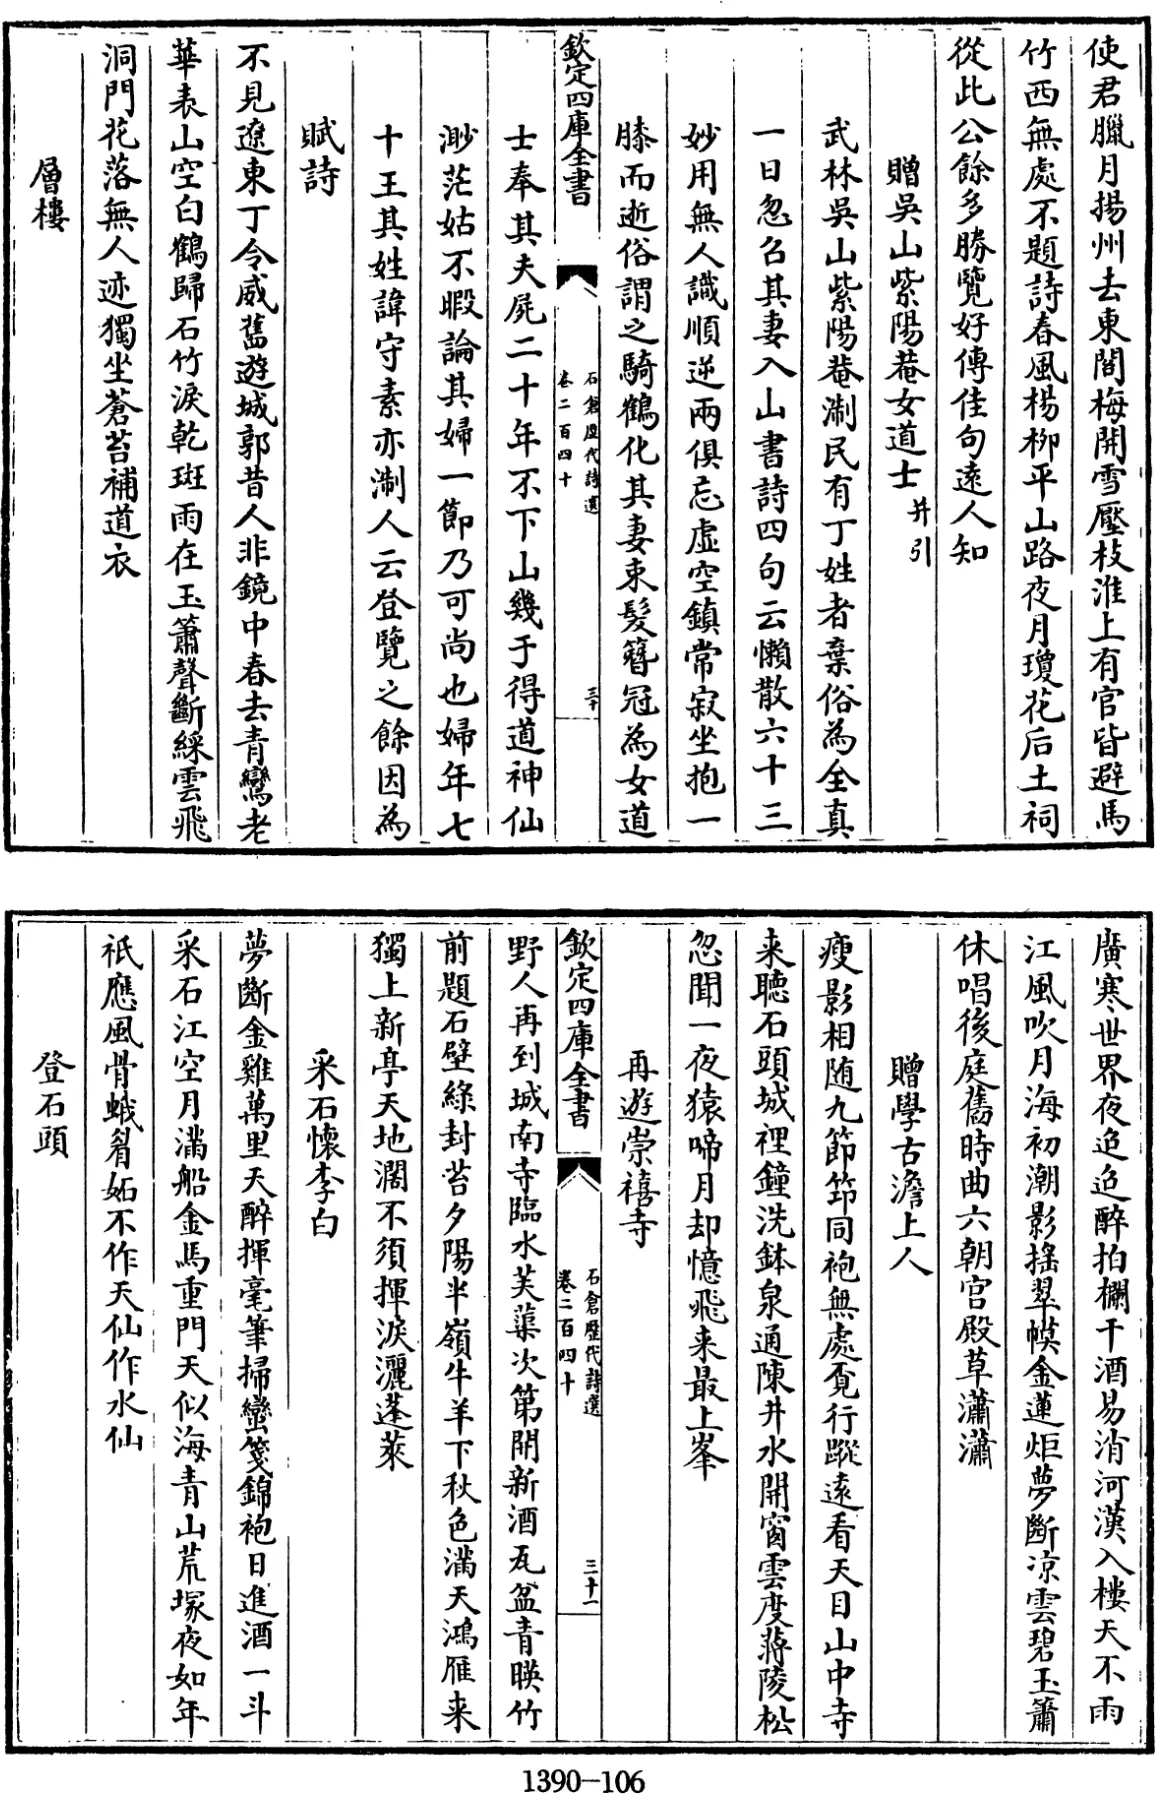 使君臘月揚州去東閣梅開雪壓枝淮上有官皆避馬
竹西無處不題詩春風楊柳平山路夜月瓊花后土祠
從此公餘多勝覽好傳佳句遠人知
贈吳山紫陽菴女道士并引
武林吳山紫陽菴淛民有丁姓者棄俗為全真
一日忽召其妻入山書詩四句云懶散六十三
妙用無人識順逆兩俱忘虛空鎮常寂坐抱一
膝而逝俗謂之騎鶴化其妻束髮簪冠為女道
欽定四庫全書
石倉歷代詩選
卷二百四十
三十
士奉其夫屍二十年不下山幾于得道神仙
渺茫姑不暇論其婦一節乃可尚也婦年七
十王其姓諱守素亦淛人云登覽之餘因為
賦詩
不見遼東丁令威舊遊城郭昔人非鏡中春去青鸞老
華表山空白鶴歸石竹淚乾斑雨在玉簫聲斷綵雲飛
洞門花落無人迹獨坐蒼苔補道衣
層樓
廣寒世界夜迢迢醉拍欄干酒易消河漢入樓天不雨
江風吹月海初潮影搖翠幙金蓮炬夢斷凉雲碧玉簫
休唱後庭舊時曲六朝宮殿草瀟瀟
贈學古澹上人
瘦影相随九節笻同袍無處覔行蹤遠看天目山中寺
来聽石頭城裡鐘洗鉢泉通陳井水開窗雲度蔣陵松
忽聞一夜猿啼月却憶飛来最上峯
再遊崇禧寺
欽定四庫全書
石倉歷代詩選
卷二百四十
三十一
野人再到城南寺臨水芙蕖次第開新酒瓦盆青暎竹
前題石壁綠封苔夕陽半嶺牛羊下秋色滿天鴻雁来
獨上新亭天地濶不須揮淚灑蓬萊
采石懷李白
夢斷金雞萬里天醉揮毫筆掃蠻箋錦袍日進酒一斗
采石江空月滿船金馬重門天似海青山荒塚夜如年
祇應風骨蛾眉妬不作天仙作水仙
登石頭
1390—106